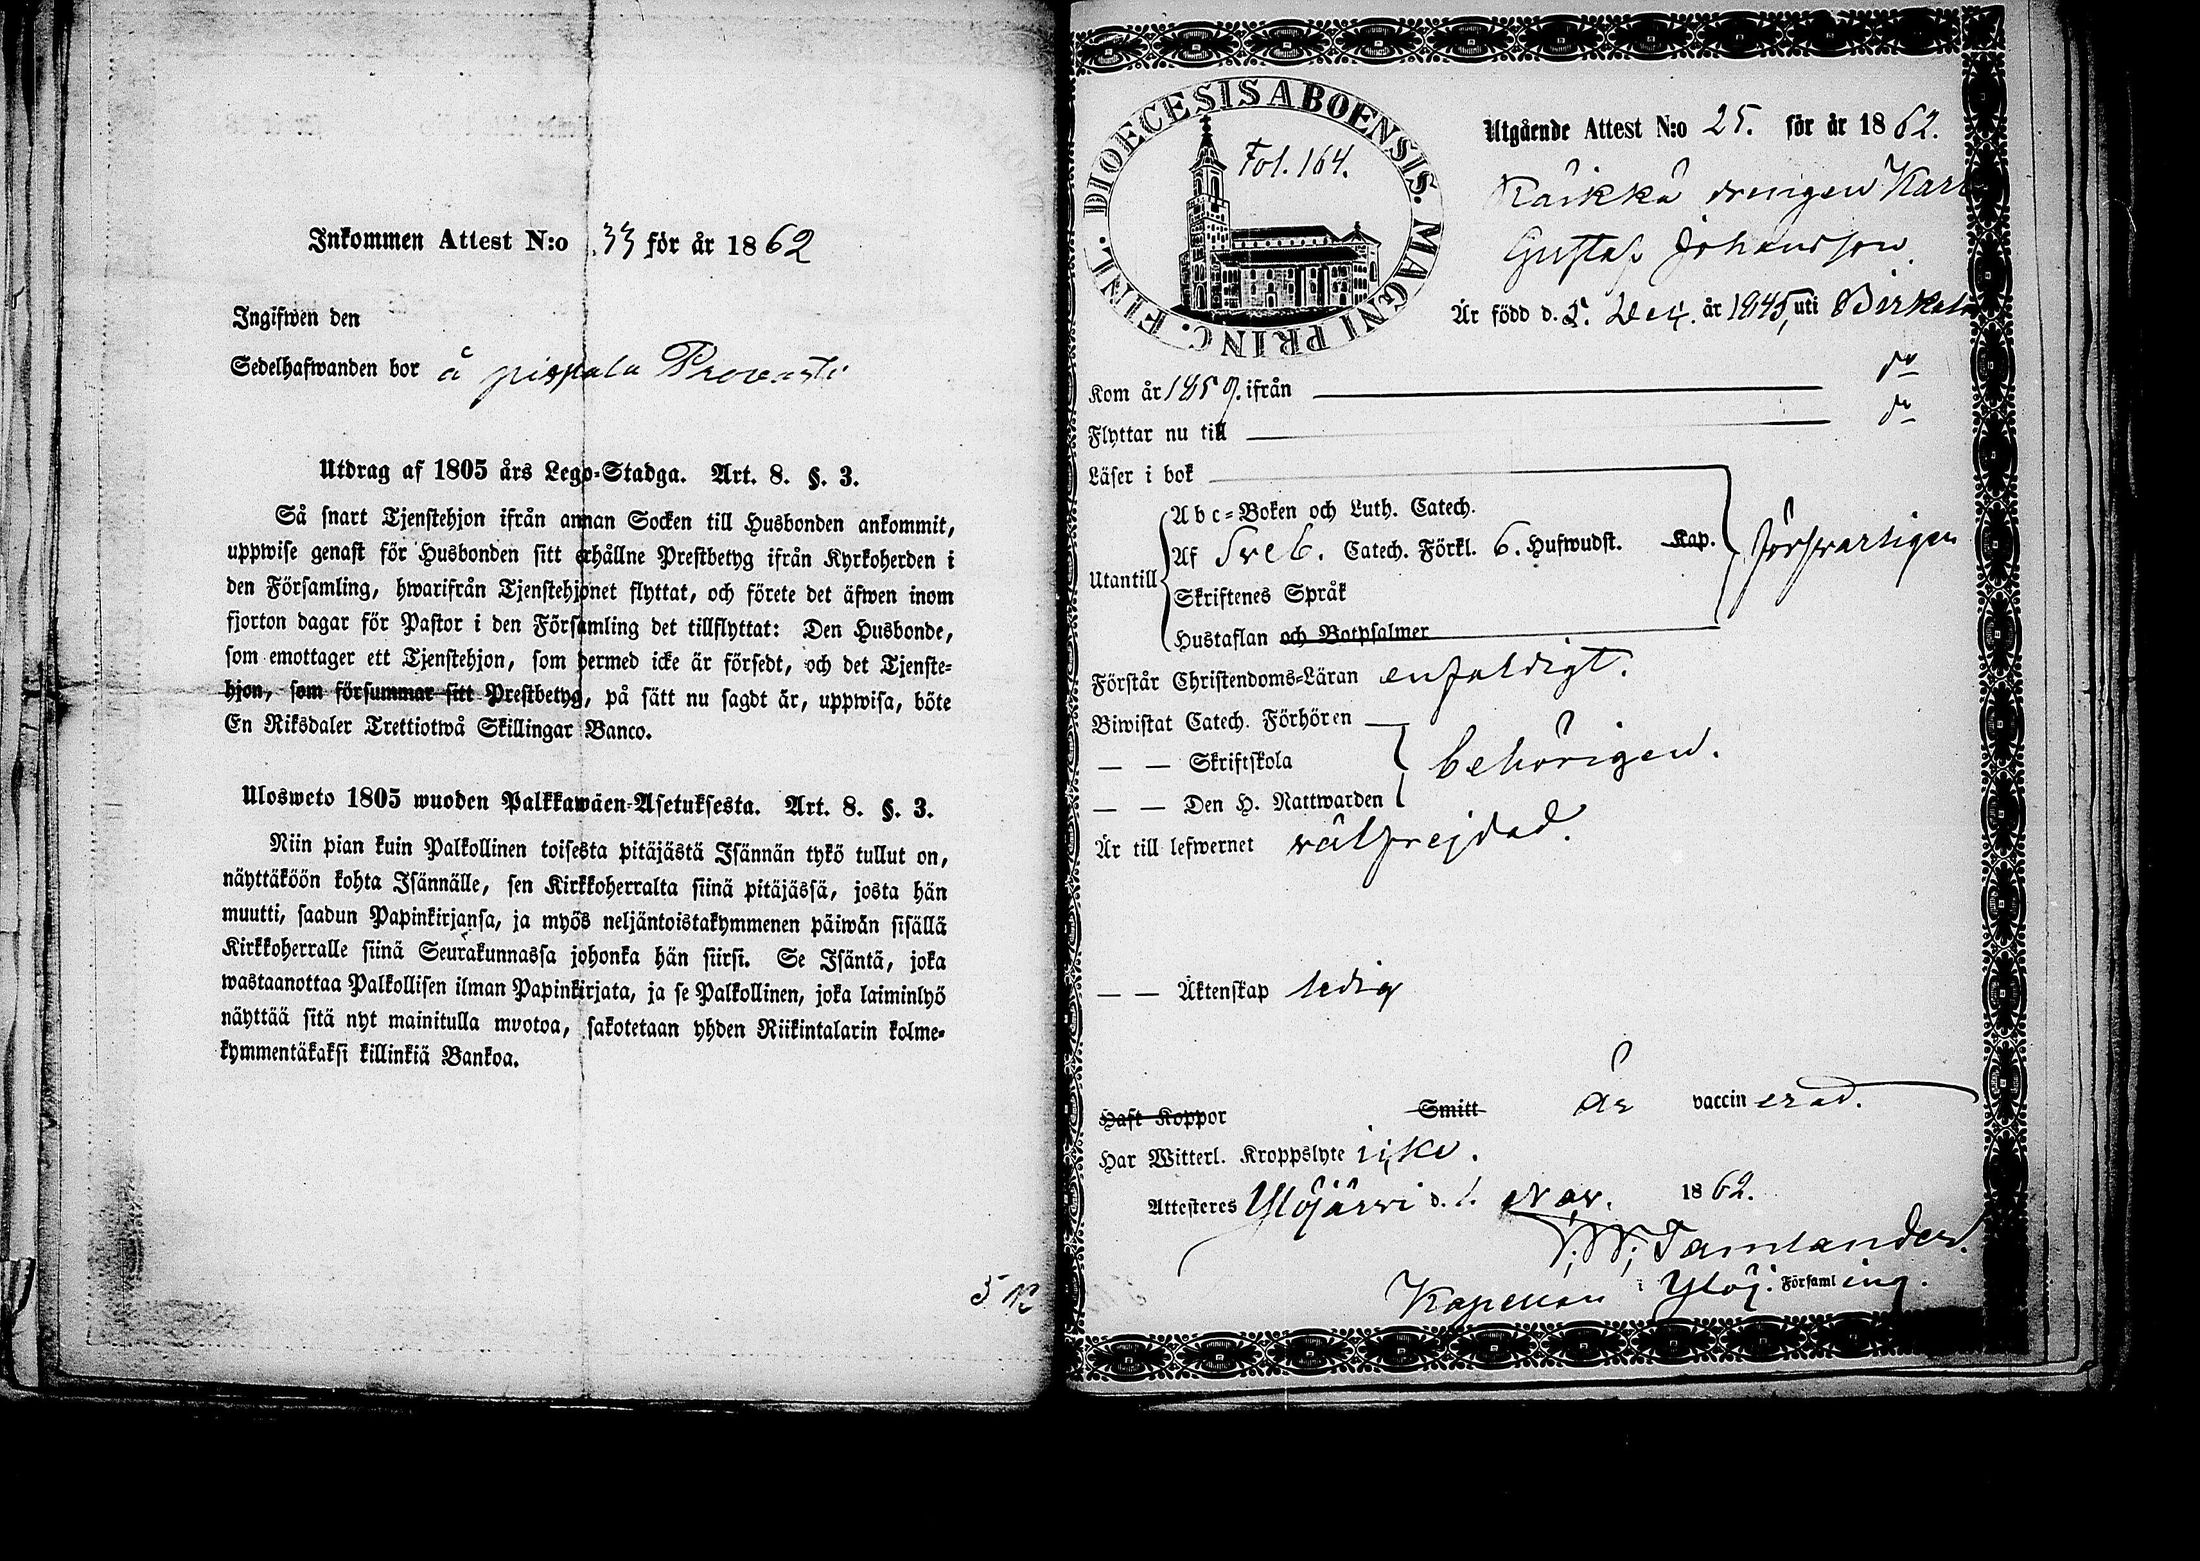 Inkommen Attest N:o 33 för år 1862
Ingifwen den
Sedelhafwanden bor å pispala
Utdrag af 1805 års Lego-Stadga. Art. 8. §. 3.
Så snart Tjenstehjon ifrån annan Socken till Husbonden ankommit,
uppwise genast för Husbonden sitt erhållne Prestbetyg ifrån Kyrkoherden i
den Församling, hwarifrån Tjenstehjonet flyttat, och förete det äfwen inom
fjorton dagar för Pastor i den Församling det tillflyttat: Den Husbonde,
som emottager ett Tjenstehjon, som dermed icke är försedt, och det Tjenste-
hjon, som försummar sitt Prestbetyg, på sätt nu sagdt är, uppwisa, böte
En Riksdaler Trettiotwå Skillingar Banco.
Ulosweto 1805 wuoden Palkkawäen-Asetuksesta. Art. 8. §. 3.
Niin pian kuin Palkollinen toisesta pitäjästä Isännän tykö tullut on,
näyttäköön kohta Isännälle, sen Kirkkoherralta siinä pitäjässä, josta hän
muutti, saadun Papinkirjansa, ja myös neljäntoistakymmenen päiwän sisällä
Kirkkoherralle siinä Seurakunnassa johonka hän siirsi. Se Isäntä, joka
wastaanottaa Palkollisen ilman Papinkirjata, ja se Palkollinen, joka laiminlyö
näyttää sitä nyt mainitulla muotoa, sakotetaan yhden Riikintalarin kolme-
kymmentäkaksi killinkiä Bankoa.
DIOECESIS ABOENSIS. MAGNI PRINC. FINL.
Fol. 164.
Utgående Attest N:o 25. för år 1862.
Räikkä drengen Karl
Gustaf Johansson
Är född d. 5. Dec. år 1845, uti Birkala
Kom år 1859. ifrån do
Flyttar nu till do
Läser i bok
Utantill
Abc-Boken och Luth. Catech.
Af Sveb. Catech. Förkl. 6. Hufwudst. Kap.
Skriftenes Språk
Hustaflan och Botpsalmer
försvarligen
Förstår Christendoms-Läran enfaldigt.
Biwistat Catech. Förhören
— — Skriftskola behörigen.
— — Den H. Nattwarden
Är till lefwernet välfrejdad.
— — Äktenskap ledig
Haft Koppor Smitt är vaccinerad.
Har Witterl. Kroppslyte icke.
Attesteres Ylöjärvi d. 1. Nov. 1862.
Tamlander.
Kapellan i Ylöj. Församling.